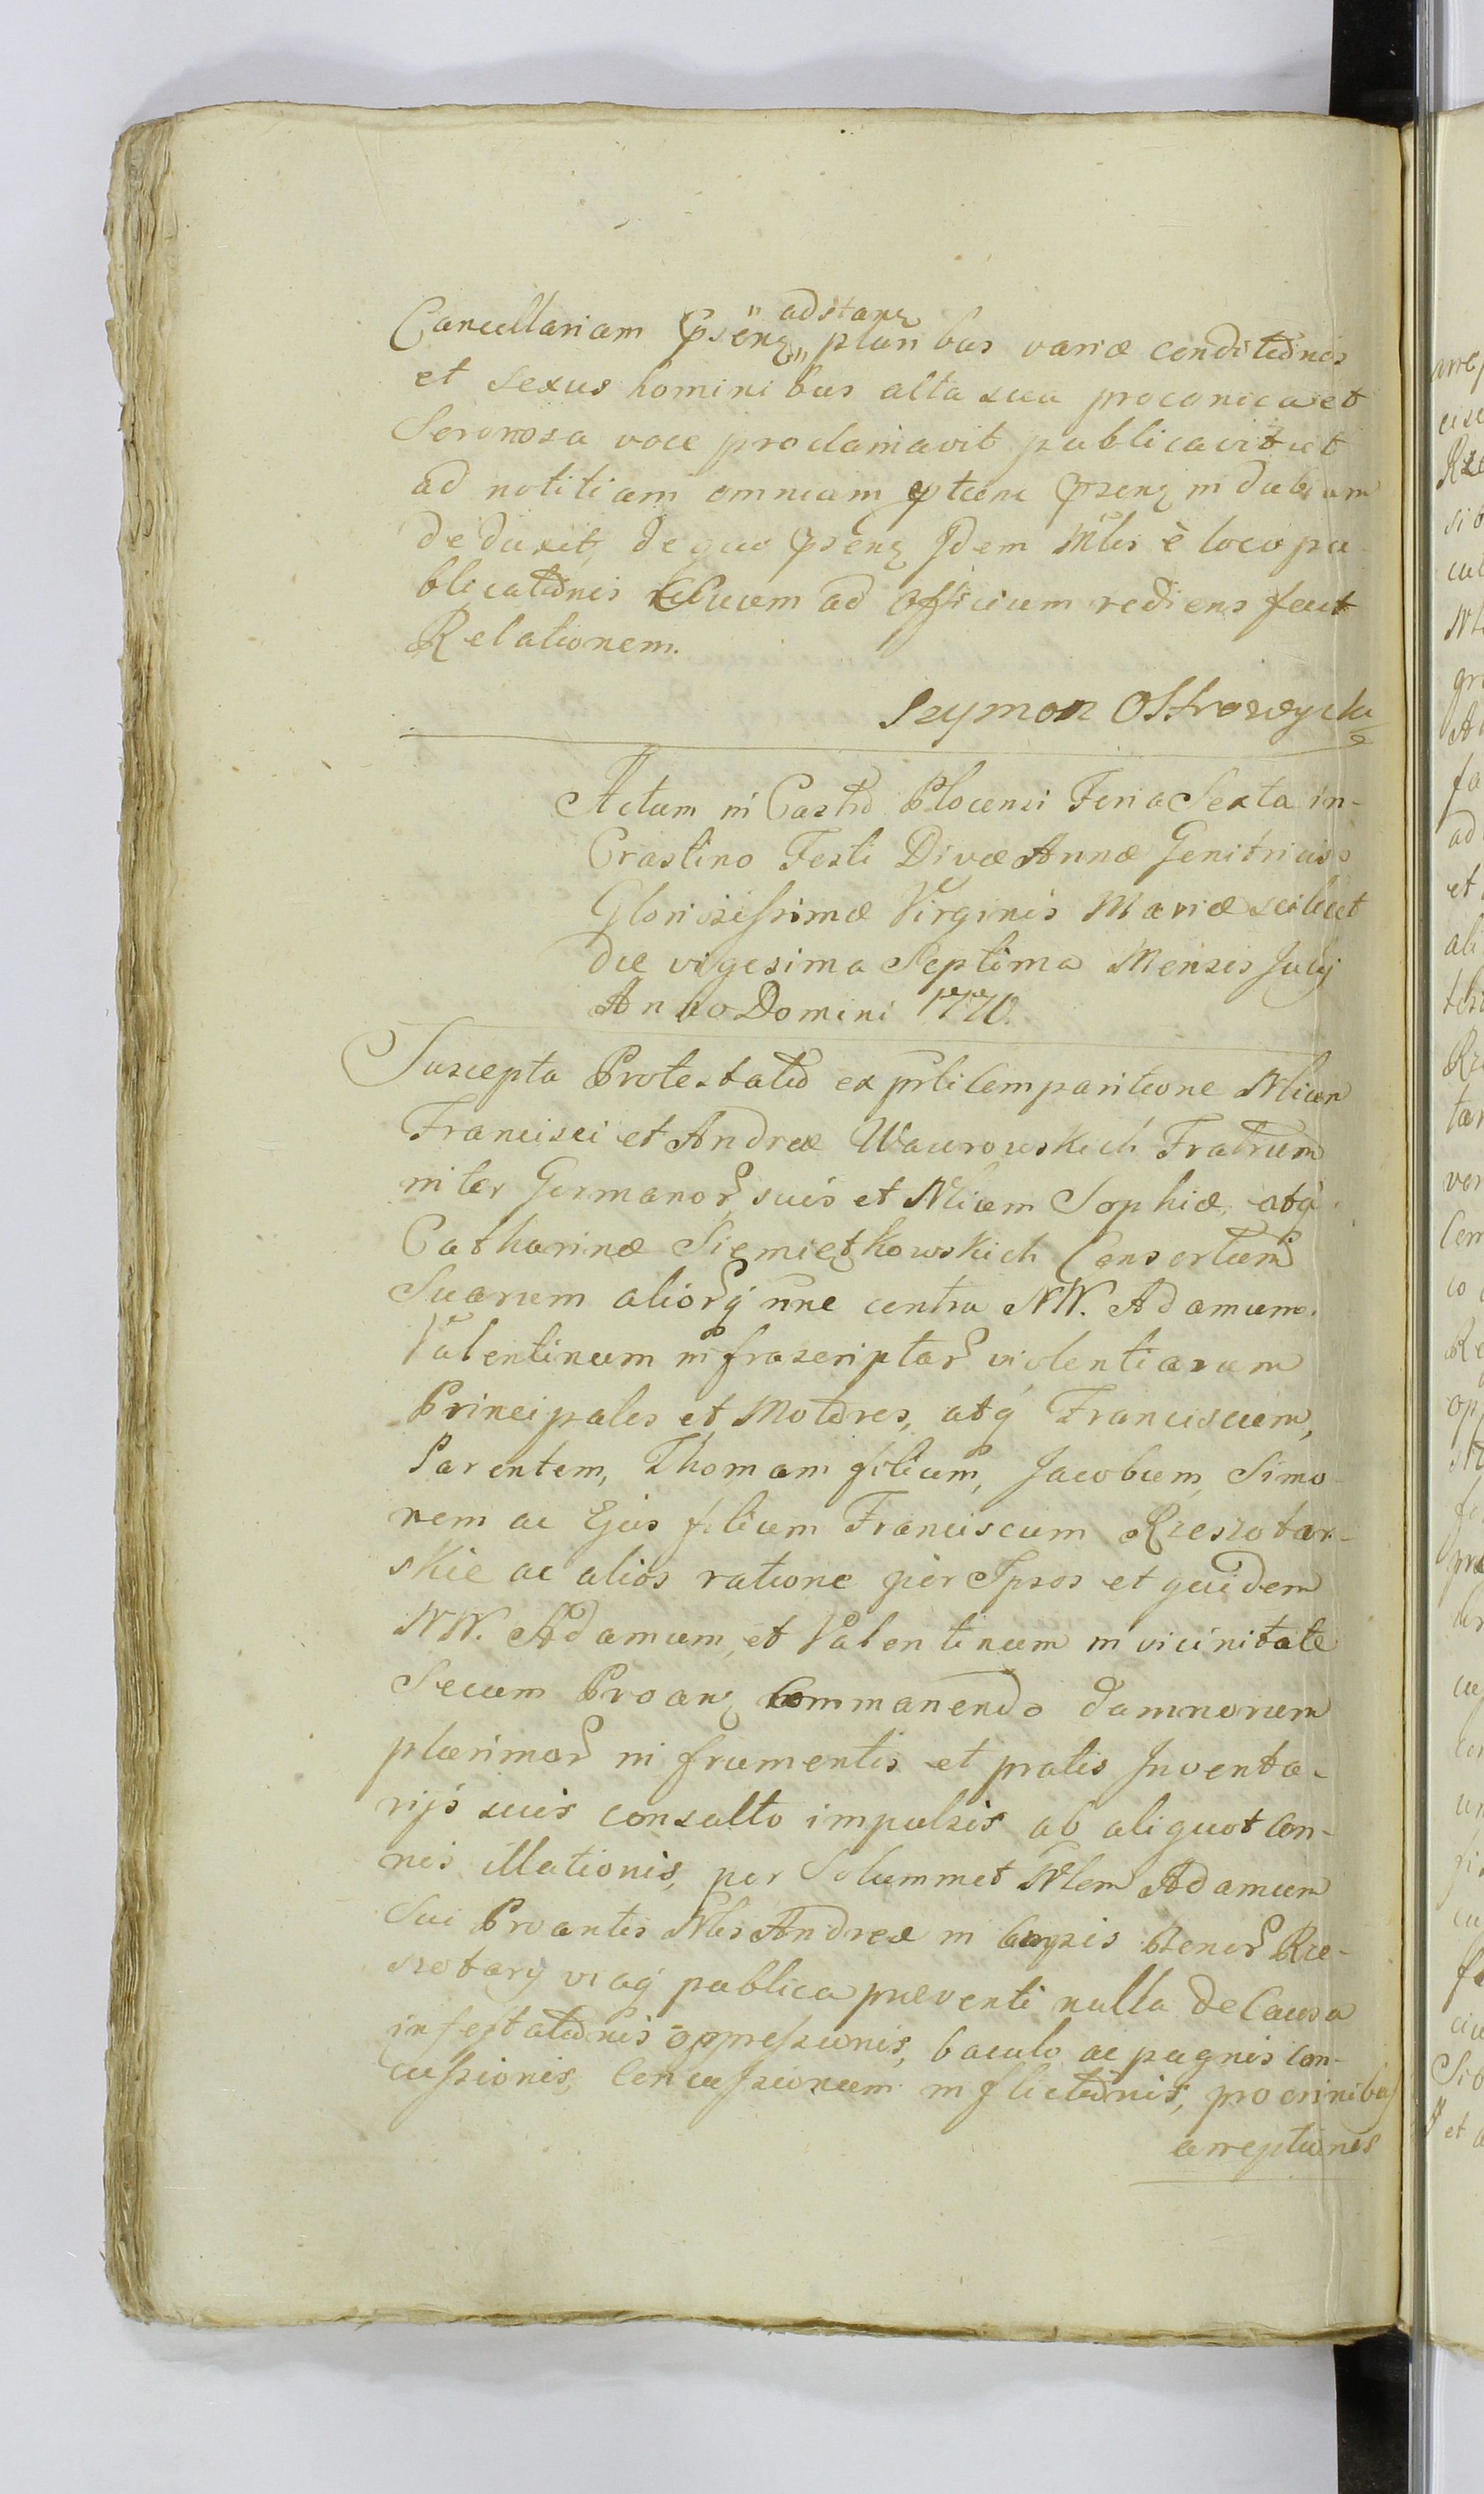 adstanz
Cancellariam Psenz pluribus variæ conditiõnis
et sexus hominibus alta sua proconica et
Seronosa voce proclamavit publicavit et
ad notitiam omnium ptium Psenz indubiam
deduxit, de quo Psenz Idem Mlis è loco pu-
blicatiõnis ad Officium rediens fecit
Relationem.
Szymon Ostrowycki
Actum in Castro Plocensi Feria Sexta in-
Crastino Festi Divæ Annæ Genitricis
Gloriosissimæ Virginis Mariæ scilicet
die vigesima Septima Mensis Julij
Anno Domini 1770.
Suscepta Protestatio ex prlicomparitione Nlium
Francisci et Andreæ Wawrowskich Fratrum
inter Germanor suis et Nlium Sophiæ atq
Catharinæ Siemiętkowskich Consortum
Suarum aliorq nne contra NN. Adamum.
Valentinum infrascriptar violentiarum
Principales et Motores, atq Franciscum,
Parentem, Thomam filium, Jacobum, Simo-
nem ac Ejus filium Franciscum Rzeszotar-
skie ac alios ratione per Ipsos et quidem
NN. Adamum, et Valentinum in vicinitate
Secum Proanz Commanendo damnorum
plurimor in frumentis et pratis Inventa-
rijs suis consulto impulsis ab aliquot Con-
nis illationis, per Solummet Nlem Adamum
Sui Proantis Nlis Andreæ in Campis bonor Rze-
szotary viaq publica præventi nulla de Causa
infestatiõnis oppressionis, baculo ac pugnis Con-
cussionis, Concussionum inflictiõnis, pro crinibus
arreptiones